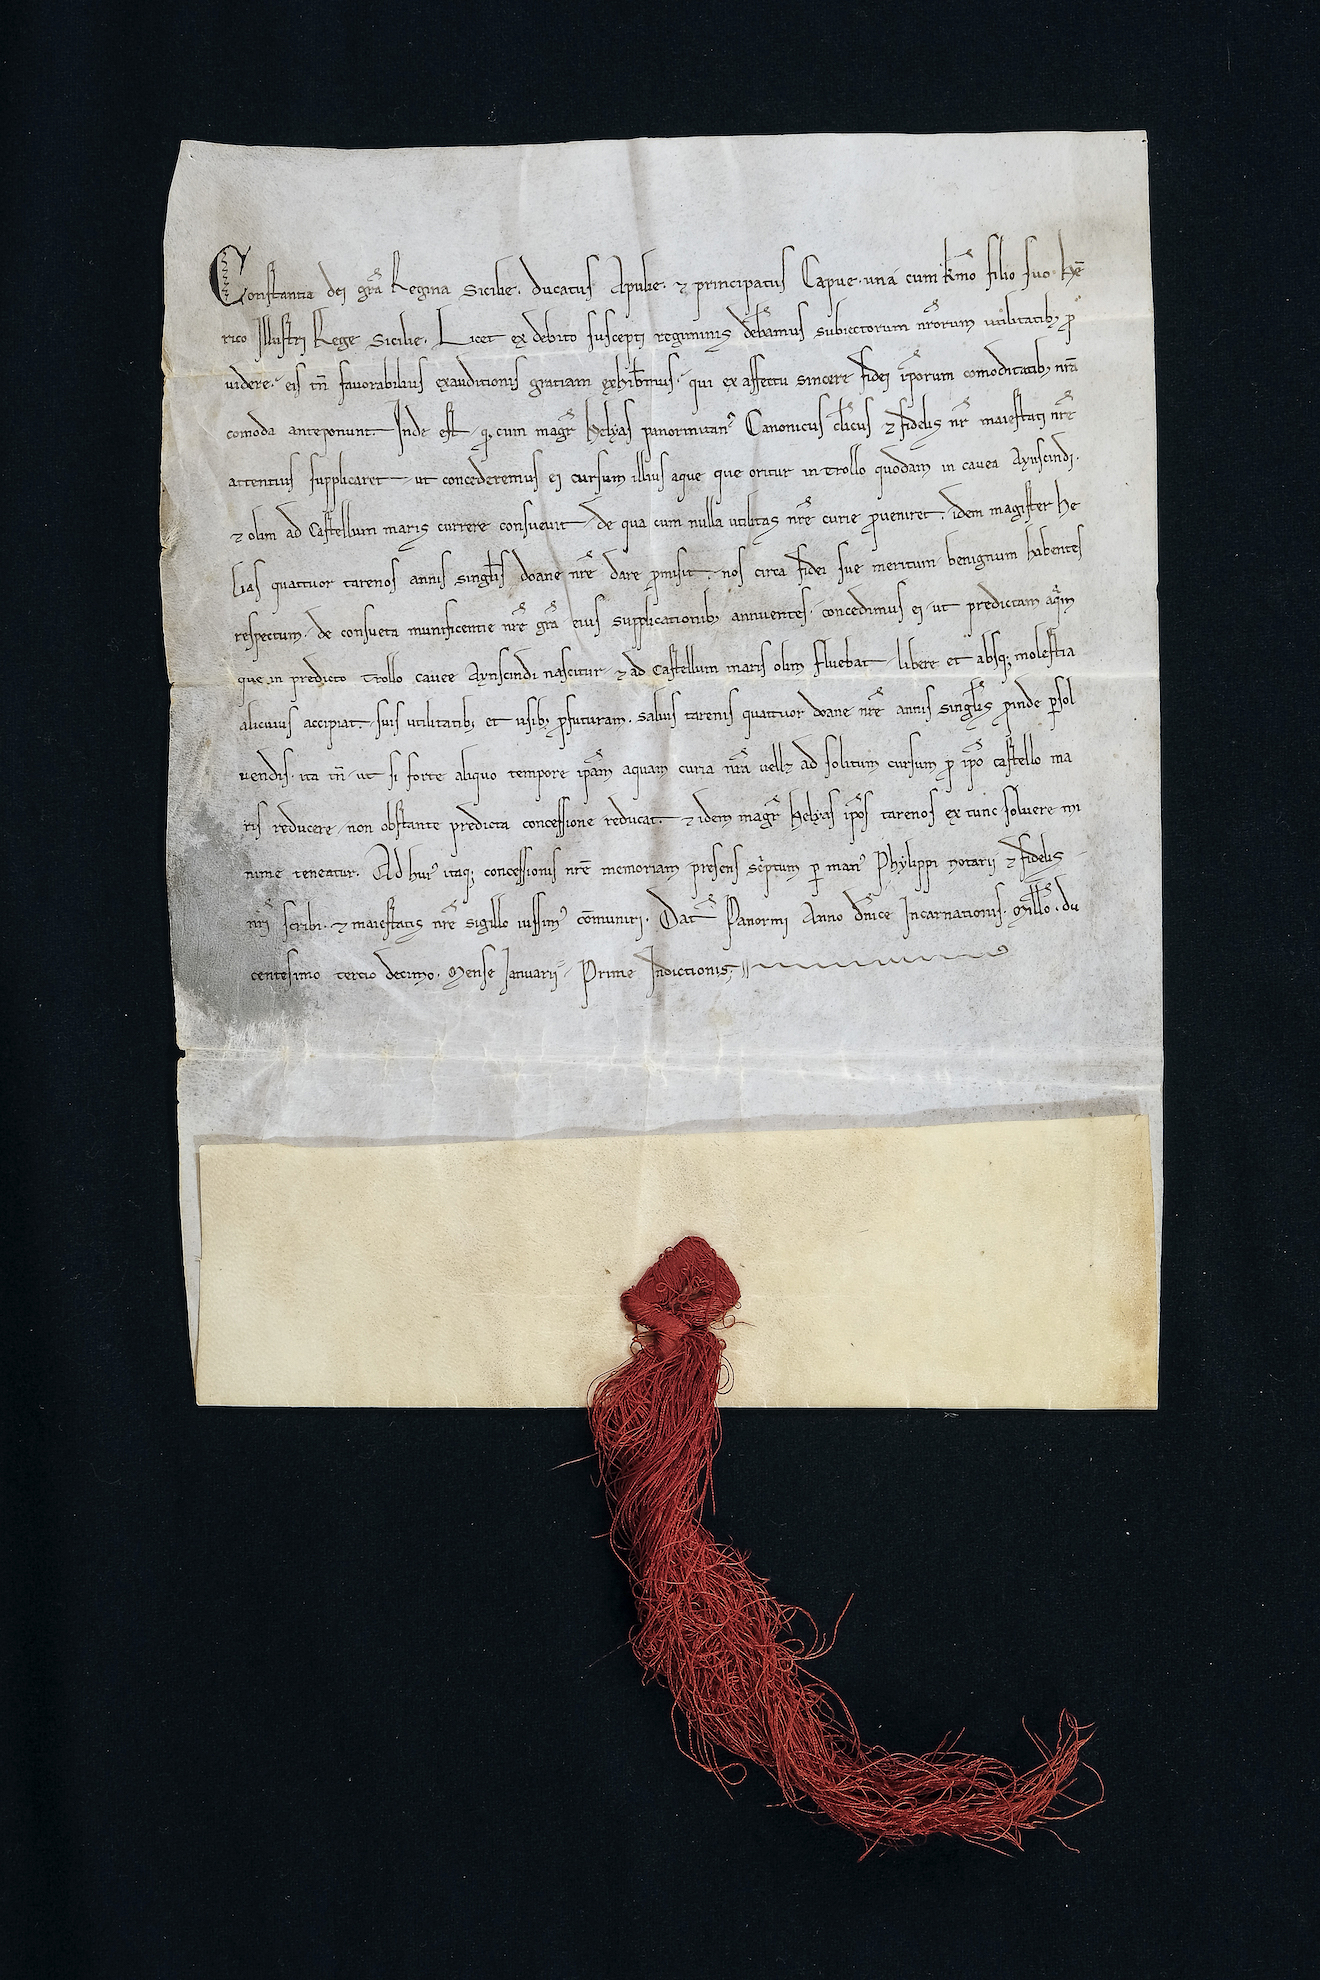 Constantia dei gr̄a Regina Sicilie. ducatus Apulie. ⁊ principatus Capue. una cum kr̄mo filio suo he̅
rico Illustri Rege Sicilie. Licet ex debito suscepti regiminis deb̄eamus subiectorum nr̄orum utilitatib; ꝓ
videre. eis tn̄ favorabilius exauditionis gratiam exhib̄emus. qui ex affectu sincere fidei ip̄orum comoditatib; nr̄a
comoda anteponunt. Inde est q; cum magr̄ Helyas panormitan᾿ Canonicus cl̄icus ⁊ fidelis nr̄ maiestati nr̄e
attentius supplicaret ut concederemus ei cursum illius aque que oritur in trollo quodam in cavea Aynscindi.
⁊ olim ad Castellum maris currere consuevit de qua cum nulla utilitas nr̄e curie ꝓveniret. idem magister He
lias quattuor tarenos annis singl̄is doane nr̄e dare ꝓmisit. nos circa fidei sue meritum benignum habentes
respectum. de consueta munificentie nr̄e gr̄a eius supplicationib; annuentes. concedimus ei ut predictam aq̄m
que in predicto trollo cavee Aynscindi nascitur ⁊ ad Castellum maris olim fluebat libere et absq; molestia
alicuius accipiat. suis utilitatib; et usib; ꝓfuturam. salvis tarenis quattuor doane nr̄e annis singl̄is ꝓinde ꝑsol
vendis. ita tn̄ ut si forte aliquo tempore ip̄am aquam curia nr̄a vell; ad solitum cursum ꝓ ip̄o castello ma
ris reducere non obstante predicta concessione reducat. ⁊ idem magr̄ Helyas ip̄os tarenos ex tunc solvere mi
nime teneatur. Ad hui᾿ itaq; concessionis nr̄e memoriam presens sc̄ptum ꝑ man᾿ Phylippi notarii ⁊ fidelis
nr̄i scribi. ⁊ maiestatis nr̄e sigillo iussim᾿ cōmuniri. Dat̄ Panormi Anno dn̄ice Incarnationis. Mill̄o. du
centesimo tercio decimo. Mense Ianuarii Prime Indictionis;